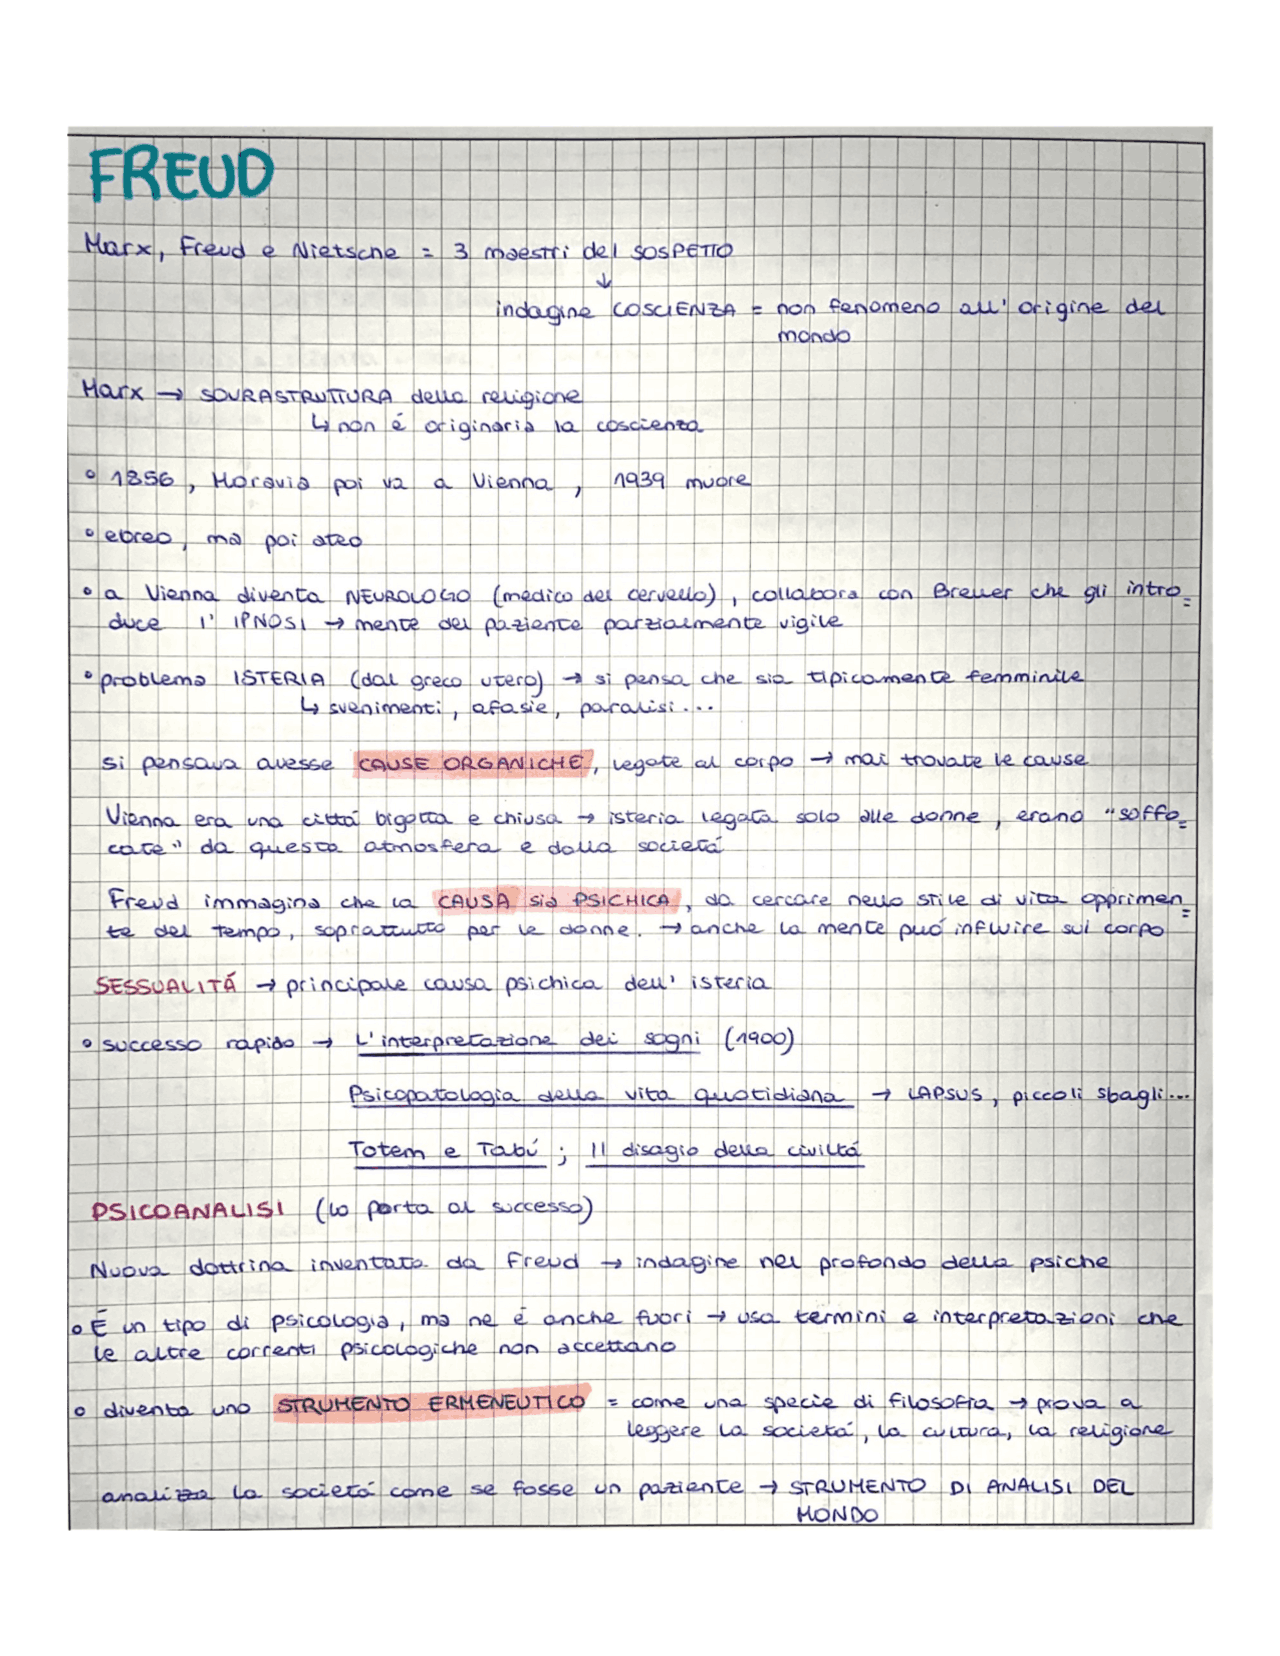 FREUD
Marx, Freud e Nietsche = 3 maestri del SOSPETTO
↓
indagine COSCIENZA = non fenomeno all' origine del
mondo
Marx → SOVRASTRUTTURA della religione
↳ non é originaria la coscienza
• 1856, Moravia poi va a Vienna, 1939 muore
• ebreo, ma poi ateo
• a Vienna diventa NEUROLOGO (medico del cervello), collabora con Breuer che gli intro=
duce l' IPNOSI → mente del paziente parzialmente vigile
• problema ISTERIA (dal greco utero) → si pensa che sia tipicamente femminile
↳ svenimenti, afasie, paralisi...
si pensava avesse CAUSE ORGANICHE, legate al corpo → mai trovate le cause
Vienna era una cittá bigotta e chiusa → isteria legata solo alle donne, erano "soffo=
cate" da questa atmosfera e dalla societá
Freud immagina che la CAUSA sia PSICHICA, da cercare nello stile di vita opprimen=
te del tempo, soprattutto per le donne. → anche la mente puó influire sul corpo
SESSUALITÁ → principale causa psichica dell' isteria
• successo rapido → L'interpretazione dei sogni (1900)
Psicopatologia della vita quotidiana → LAPSUS, piccoli sbagli...
Totem e Tabú; Il disagio della civiltá
PSICOANALISI (lo porta al successo)
Nuova dottrina inventata da Freud → indagine nel profondo della psiche
• É un tipo di psicologia, ma ne é anche fuori → usa termini e interpretazioni che
le altre correnti psicologiche non accettano
• diventa uno STRUMENTO ERMENEUTICO = come una specie di filosofia → prova a
leggere la societá, la cultura, la religione
analizza la societá come se fosse un paziente → STRUMENTO DI ANALISI DEL
MONDO